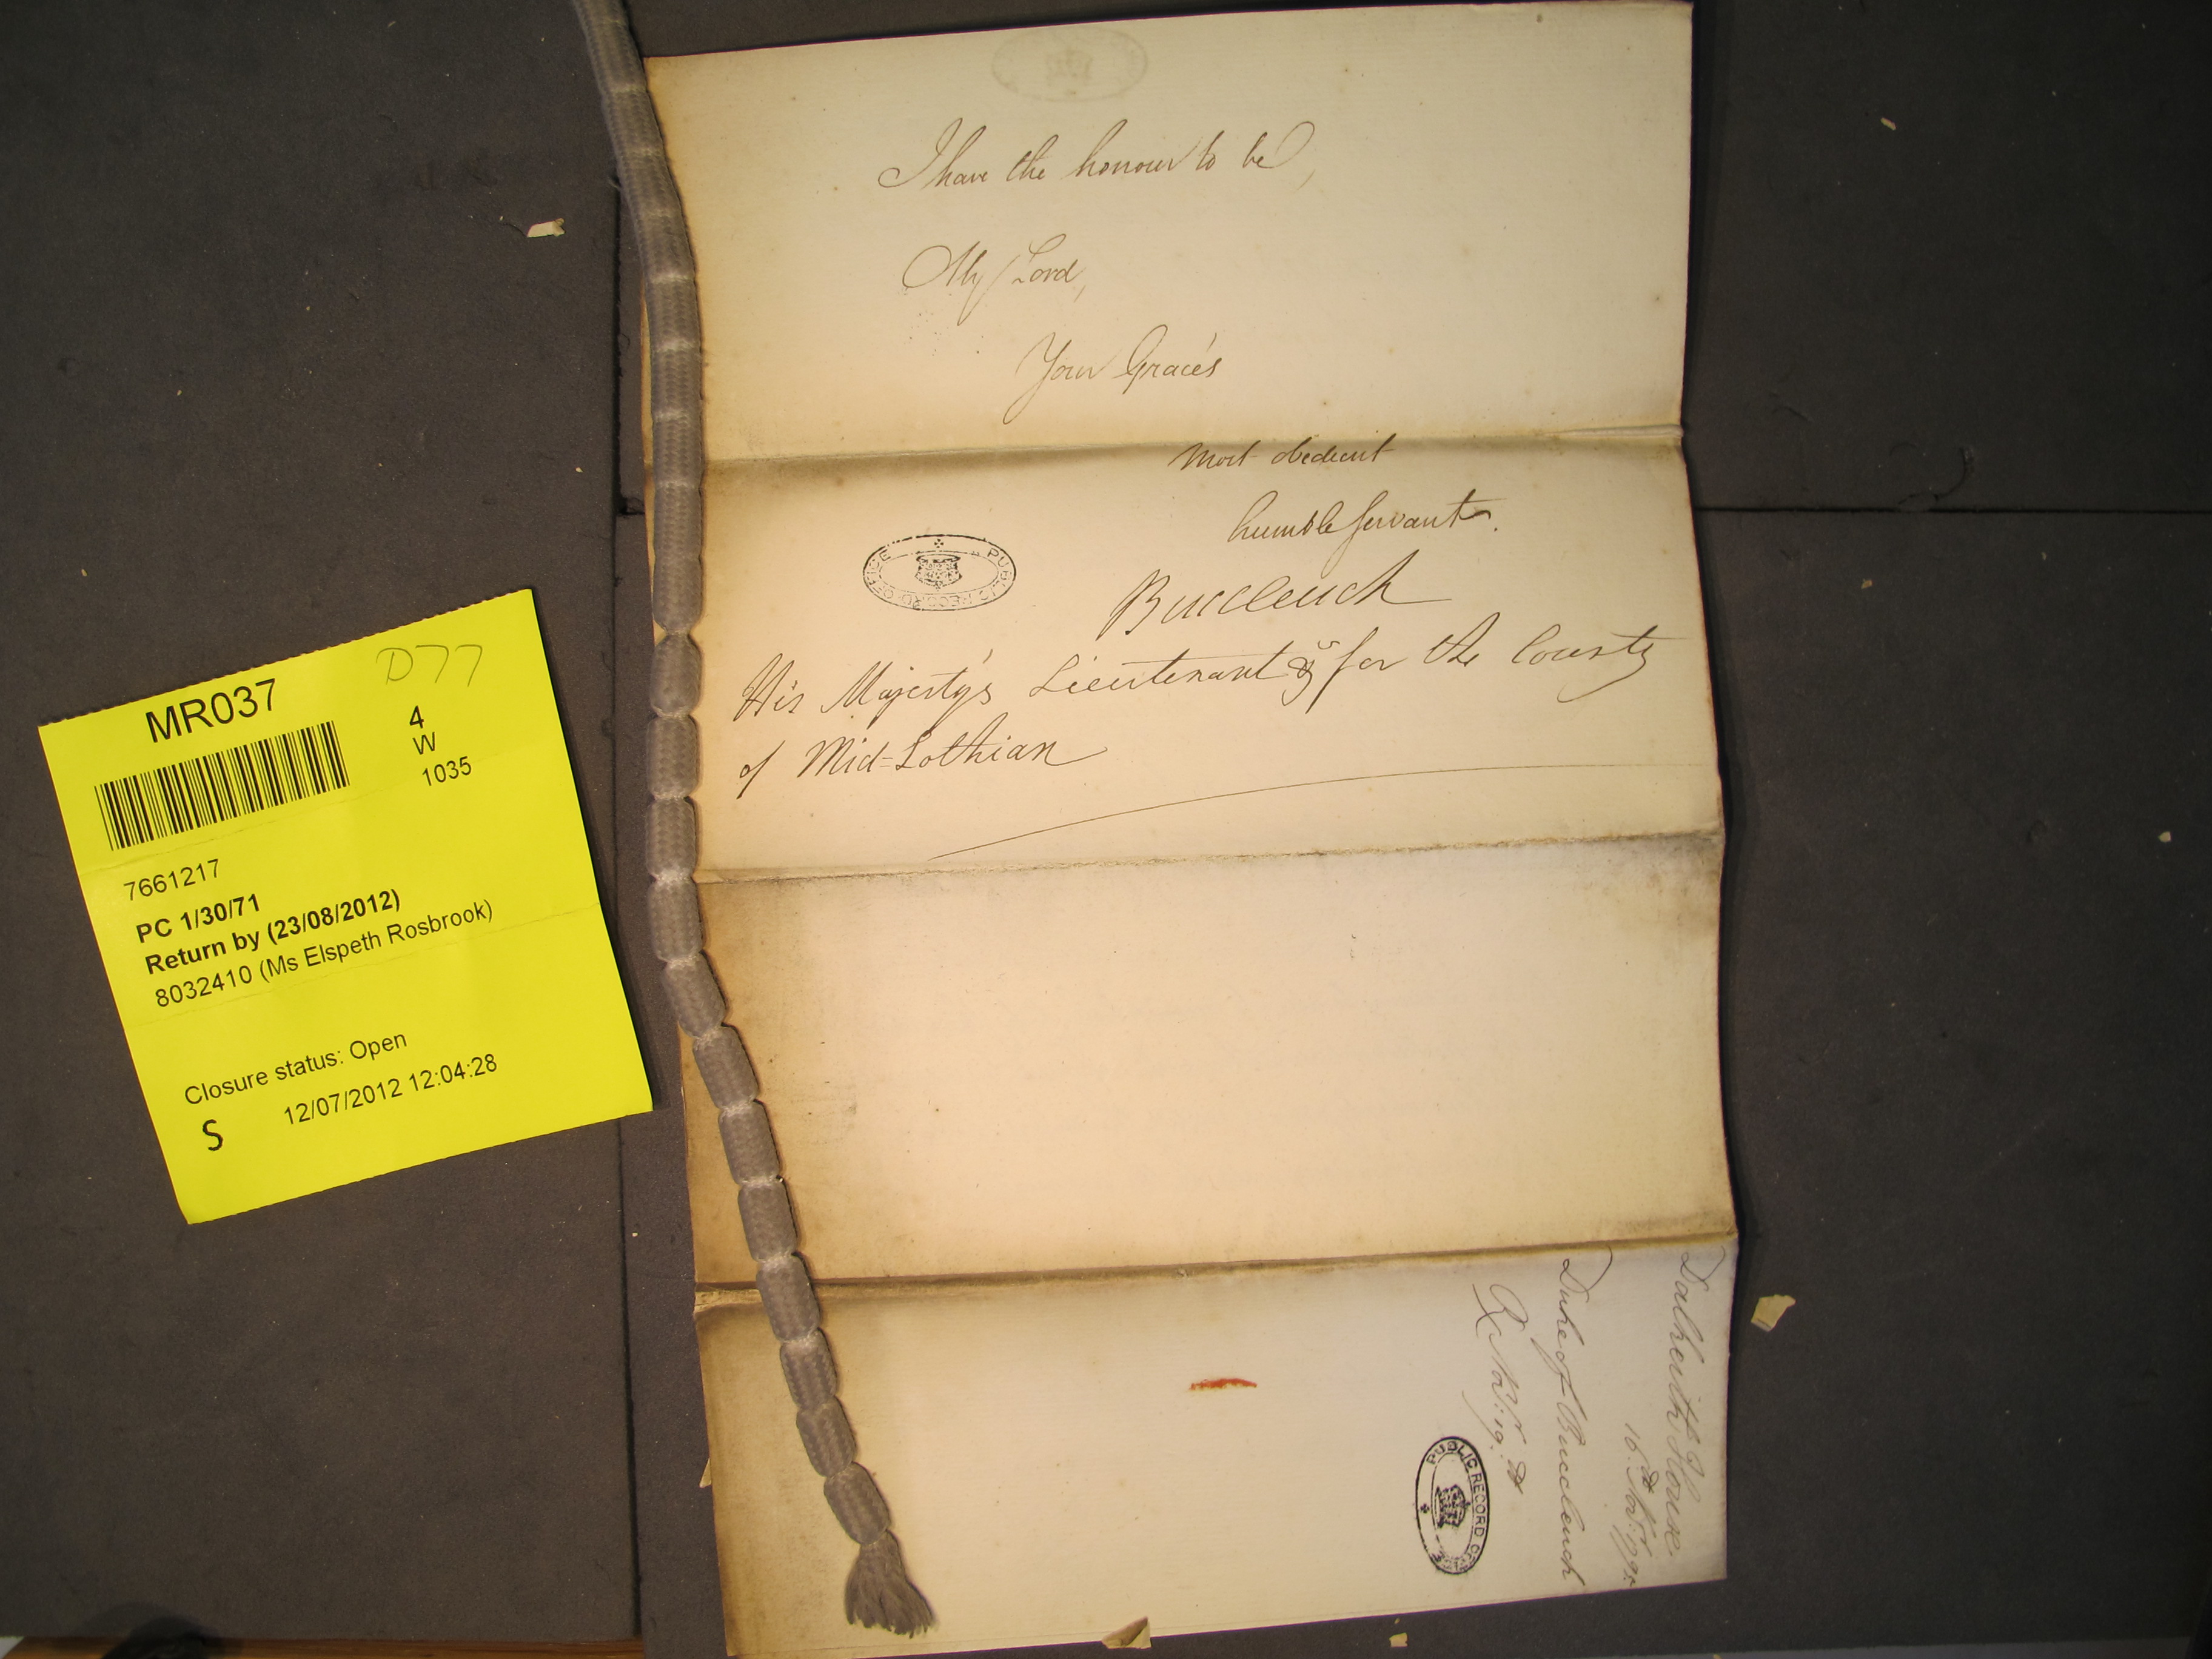 I have the honour to be,
My Lord,
Your Grace's
Most obedient
humble Servant.
Buccleuch
His Majesty's Lieutenant &c for the County
of Mid=Lothian
PUBLIC RECORD OFFICE
Dalkeith House
16th Novr:
Duke of Buccleuch
Rx Novr: 19th
PUBLIC RECORD OFFICE
D77
MR037
4
W
1035
7661217
PC 1/30/71
Return by (23/08/2012)
8032410 (Ms Elspeth Rosbrook)
Closure status: Open
S 12/07/2012 12:04:28